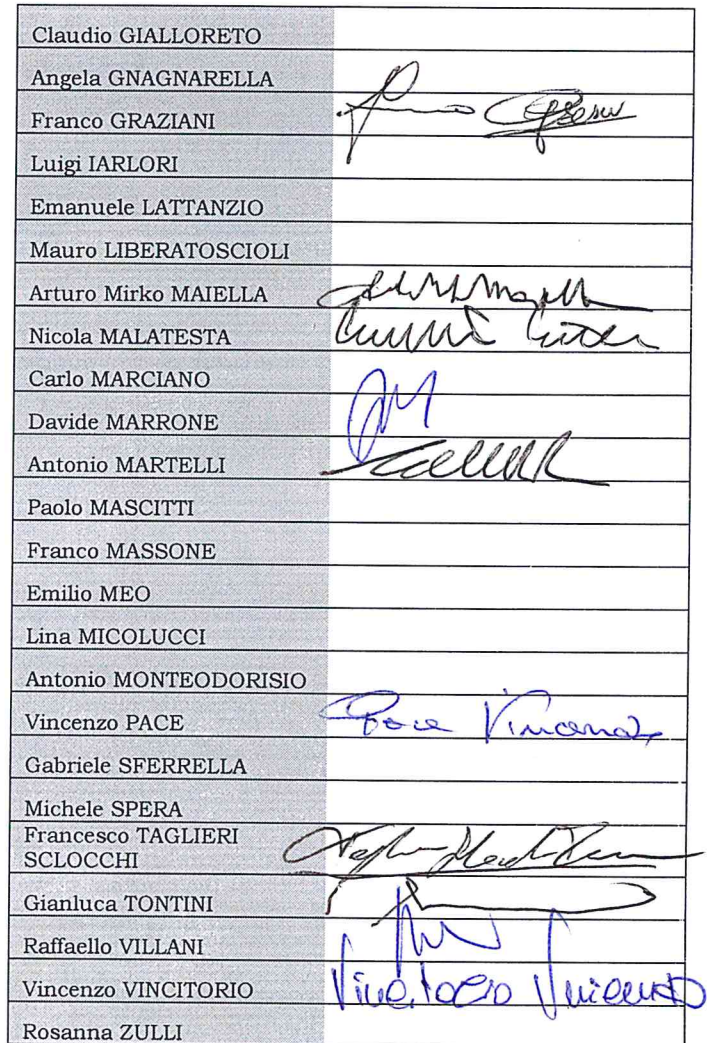 Claudio GIALLORETO
Angela GNAGNARELLA
Franco GRAZIANI
Luigi IARLORI
Emanuele LATTANZIO
Mauro LIBERATOSCIOLI
Arturo Mirko MAIELLA
Nicola MALATESTA
Carlo MARCIANO
Davide MARRONE
Antonio MARTELLI
Paolo MASCITTI
Franco MASSONE
Emilio MEO
Lina MICOLUCCI
Antonio MONTEODORISIO
Vincenzo PACE Pace Vincenzo
Gabriele SFERRELLA
Michele SPERA
Francesco TAGLIERI
SCLOCCHI
Gianluca TONTINI
Raffaello VILLANI
Vincenzo VINCITORIO Vincitorio Vincenzo
Rosanna ZULLI